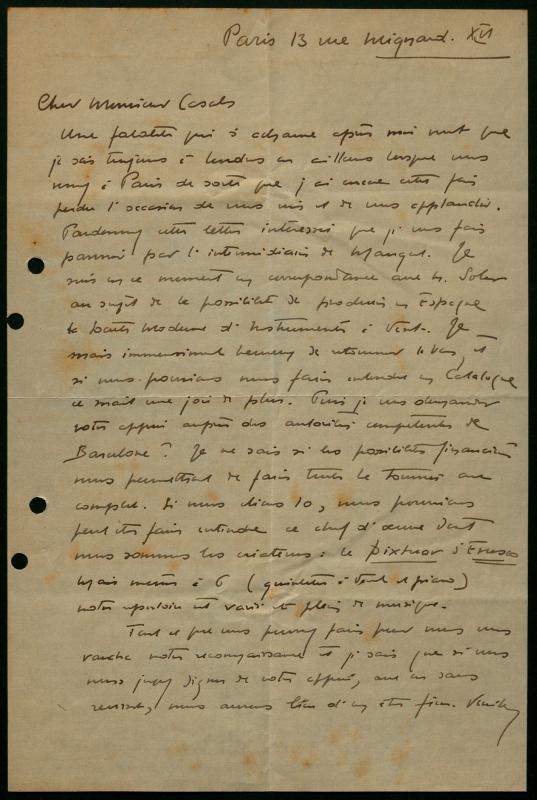 Paris 13 rue Mignard. XVI
Cher Monsieur Casals
Une fatalité qui s'acharne après moi veut que
je sois toujours à Londres ou ailleurs lorsque vous
venez à Paris de sorte que j'ai encore cette fois
perdu l'occasion de vous voir et de vous applaudir.
Pardonnez cette lettre intéressée que je vous fais
parvenir par l'intermédiaire de Mangeot. Je
suis en ce moment en correspondance avec M. Soler
au sujet de la possibilité de produire en Espagne
la Société Moderne d'Instruments à Vent. Je
serais immensément heureux de retourner là bas, et
si nous pouvions nous faire entendre en Catalogne
ce serait une joie de plus. Puis je vous demander
votre appui auprès des autorités compétentes de
Barcelone ? Je ne sais si les possibilités financières
nous permettront de faire toute la Tournée au
complet. Si nous étions 10, nous pourrions
peut être faire entendre ce chef d'œuvre dont
nous sommes les créateurs : le Dixtuor d'Enesco
Mais même à 6 (quintette à vent et piano)
notre répertoire est varié et plein de musique.
Tout ce que vous pourrez faire pour nous vous
vaudra notre reconnaissance et je sais que si vous
nous jugez dignes de votre appui, avec ou sans
réussite, nous aurons lieu d'en être fiers. Veuillez